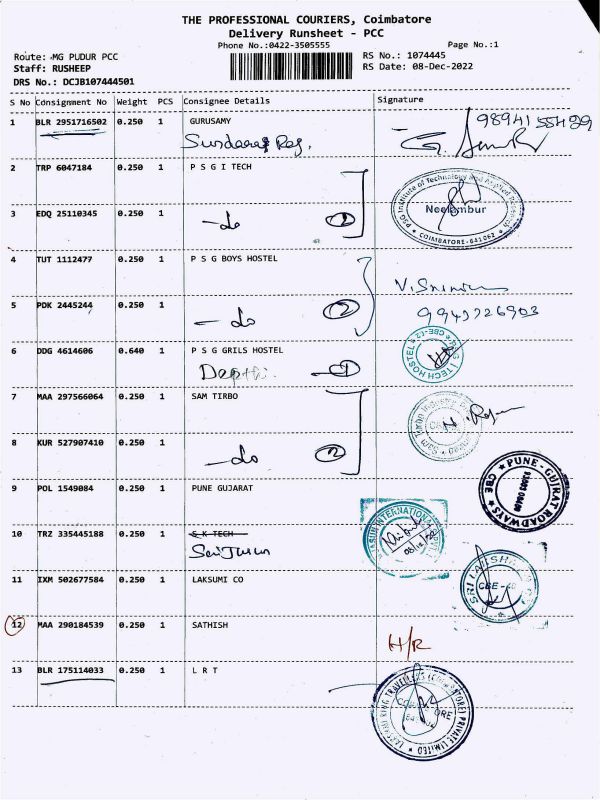 THE PROFESSIONAL COURIERS, Coimbatore
Delivery Runsheet - PCC
Phone No.:0422-3505555 Page No.:1
Route: MG PUDUR PCC RS No.: 1074445
Staff: RUSHEEP RS Date: 08-Dec-2022
DRS No.: DCJB107444501
S No Consignment No Weight PCS Consignee Details Signature
1 BLR 2951716502 0.250 1 GURUSAMY
2 TRP 6047184 0.250 1 P S G I TECH
PSG Institute of Technology and Applied Research
Neelambur
COIMBATORE-641062
3 EDQ 25110345 0.250 1
- do 1
4 TUT 1112477 0.250 1 P S G BOYS HOSTEL
5 PDK 2445244 0.250 1
- do 2
6 DDG 4614606 0.640 1 P S G GRILS HOSTEL
Depthi 1
7 MAA 297566064 0.250 1 SAM TIRBO
8 KUR 527907410 0.250 1
- do 2
9 POL 1549084 0.250 1 PUNE GUJARAT
PUNE - GUJRAT ROADWAYS
CBE
10 TRZ 335445188 0.250 1 S K TECH
11 IXM 502677584 0.250 1 LAKSUMI CO
12 MAA 290184539 0.250 1 SATHISH
H/R
13 BLR 175114033 0.250 1 L R T